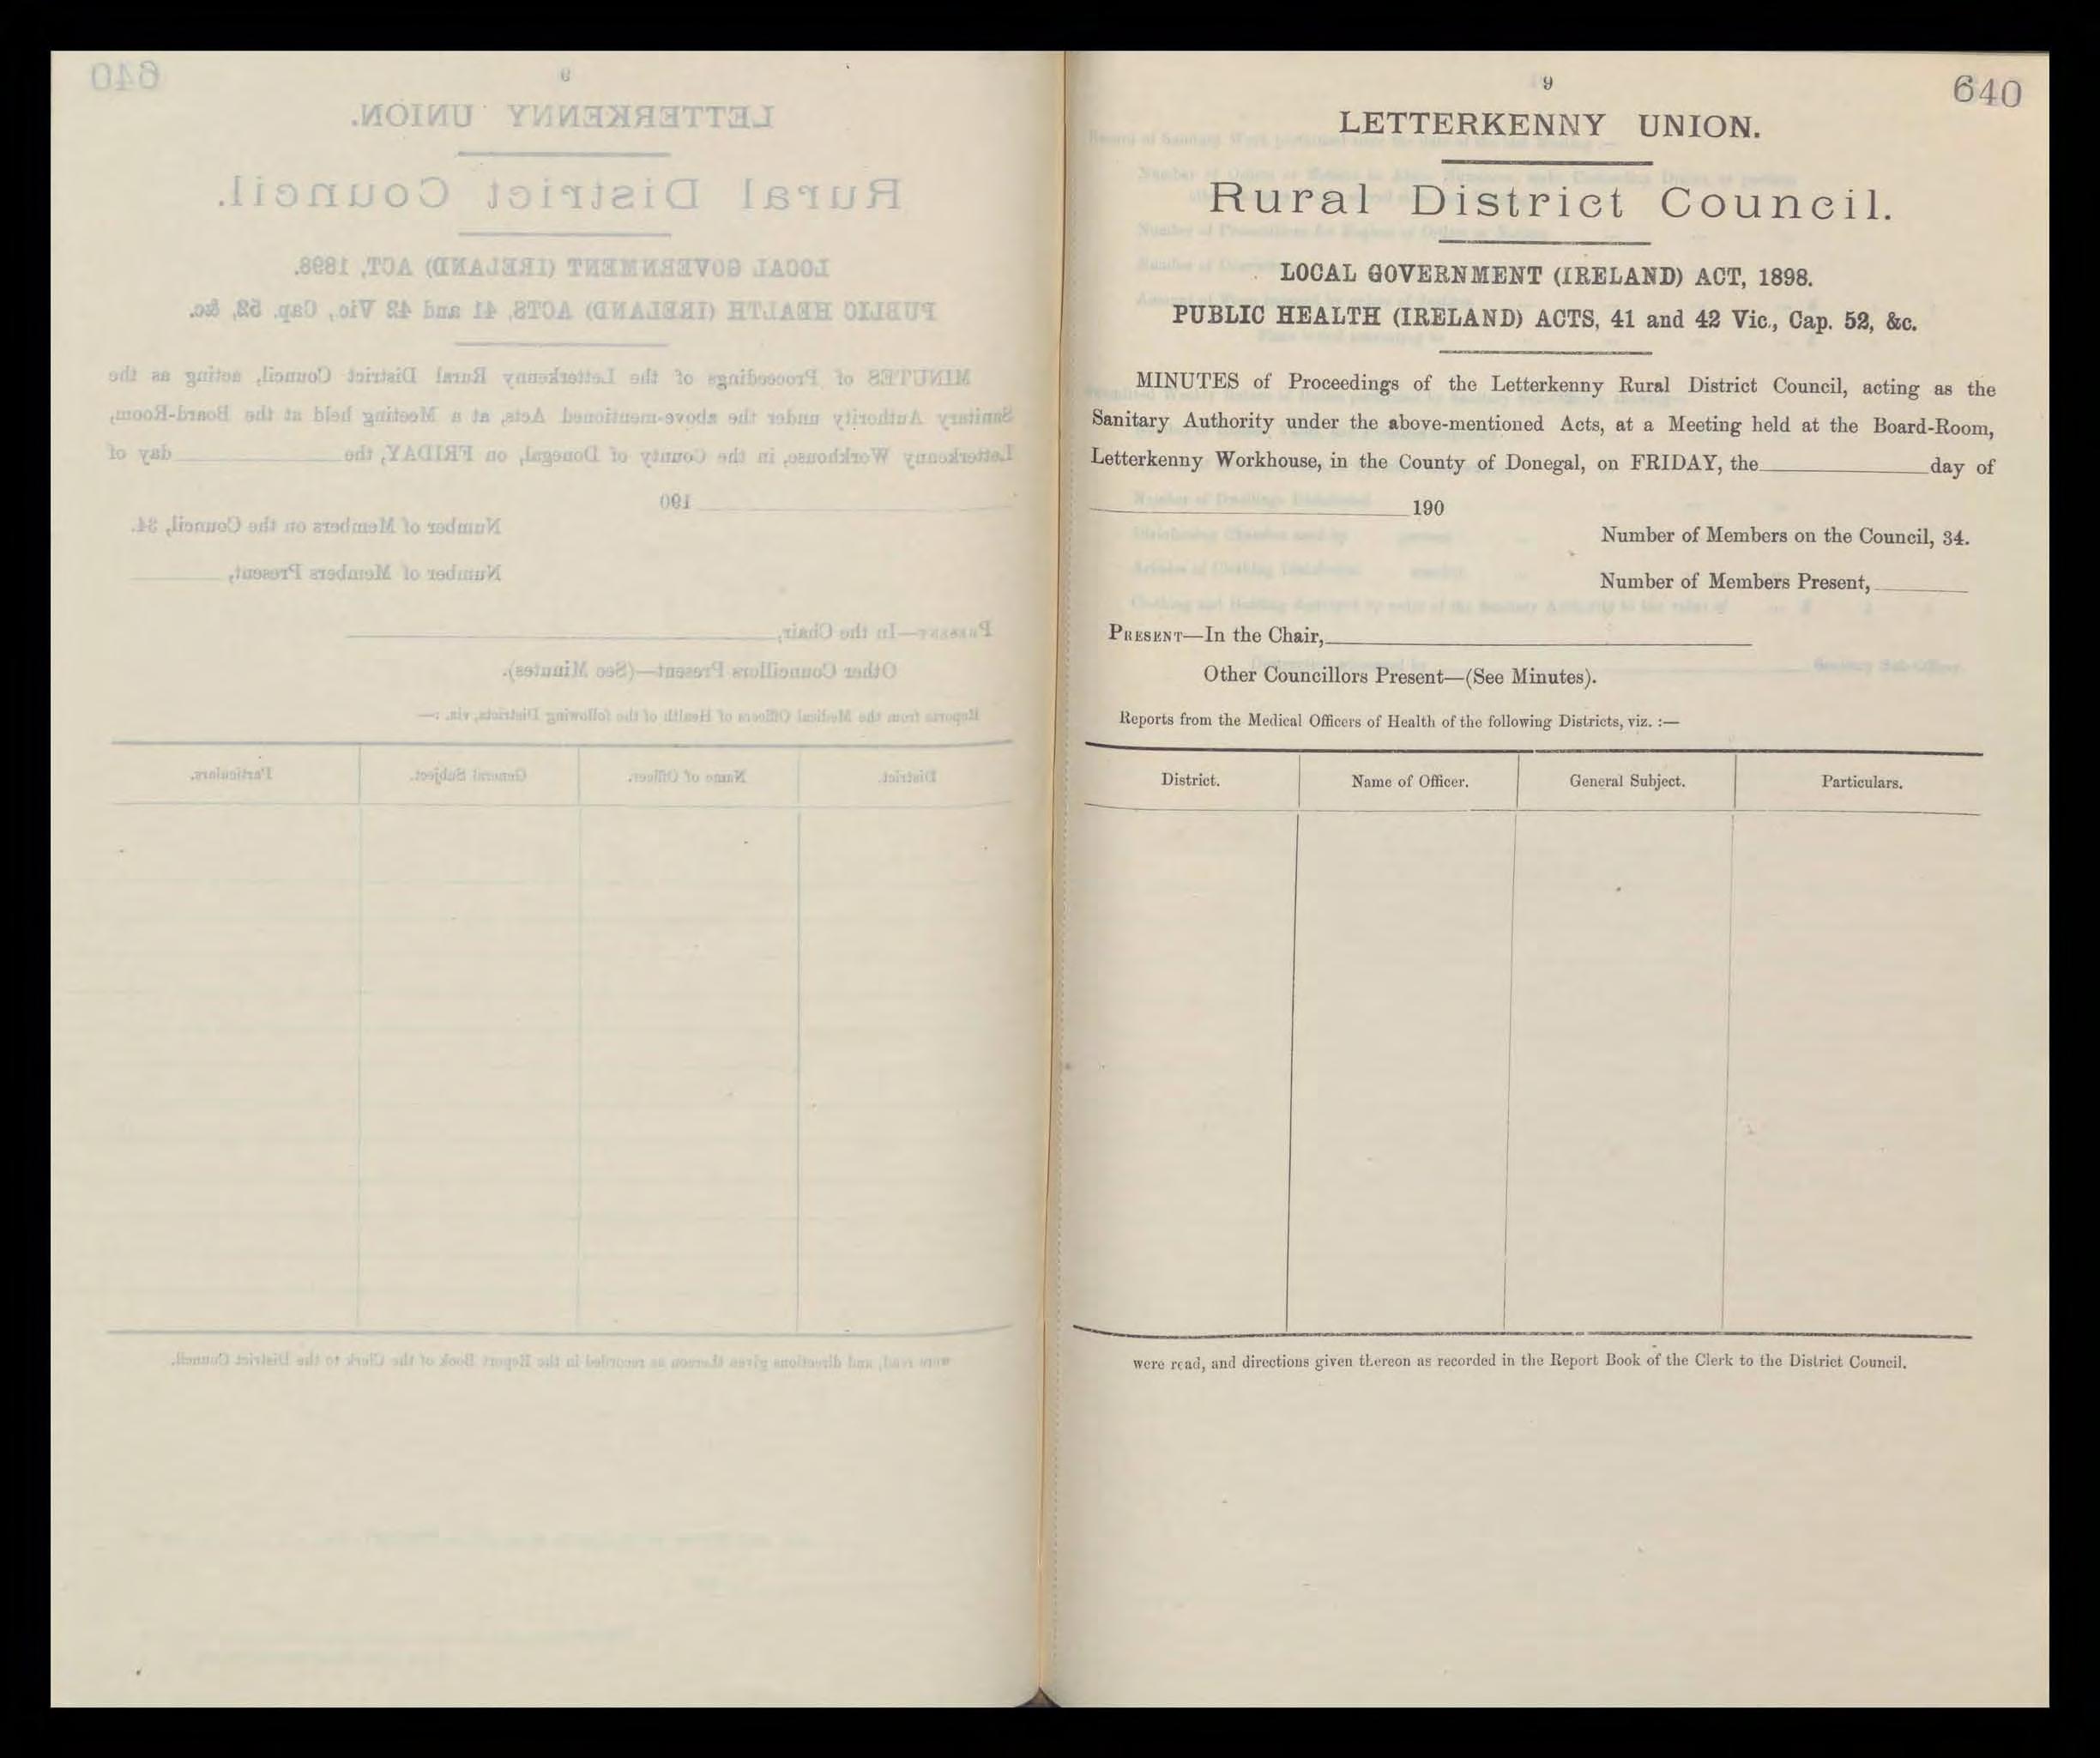 9
640
LETTERKENNY UNION.
Rural District Council.
LOCAL GOVERNMENT (IRELAND) ACT, 1898.
PUBLIC HEALTH (IRELAND) ACTS, 41 and 42 Vic., Cap. 52, &c.
MINUTES of Proceedings of the Letterkenny Rural District Council, acting as the
Sanitary Authority under the above-mentioned Acts, at a Meeting held at the Board-Room,
Letterkenny Workhouse, in the County of Donegal, on FRIDAY, the____day of
____190
Number of Members on the Council, 34.
Number of Members Present,____
PRESENT—In the Chair,____
Other Councillors Present—(See Minutes).
Reports from the Medical Officers of Health of the following Districts, viz. :—
District. Name of Officer. General Subject. Particulars.
were read, and directions given thereon as recorded in the Report Book of the Clerk to the District Council.